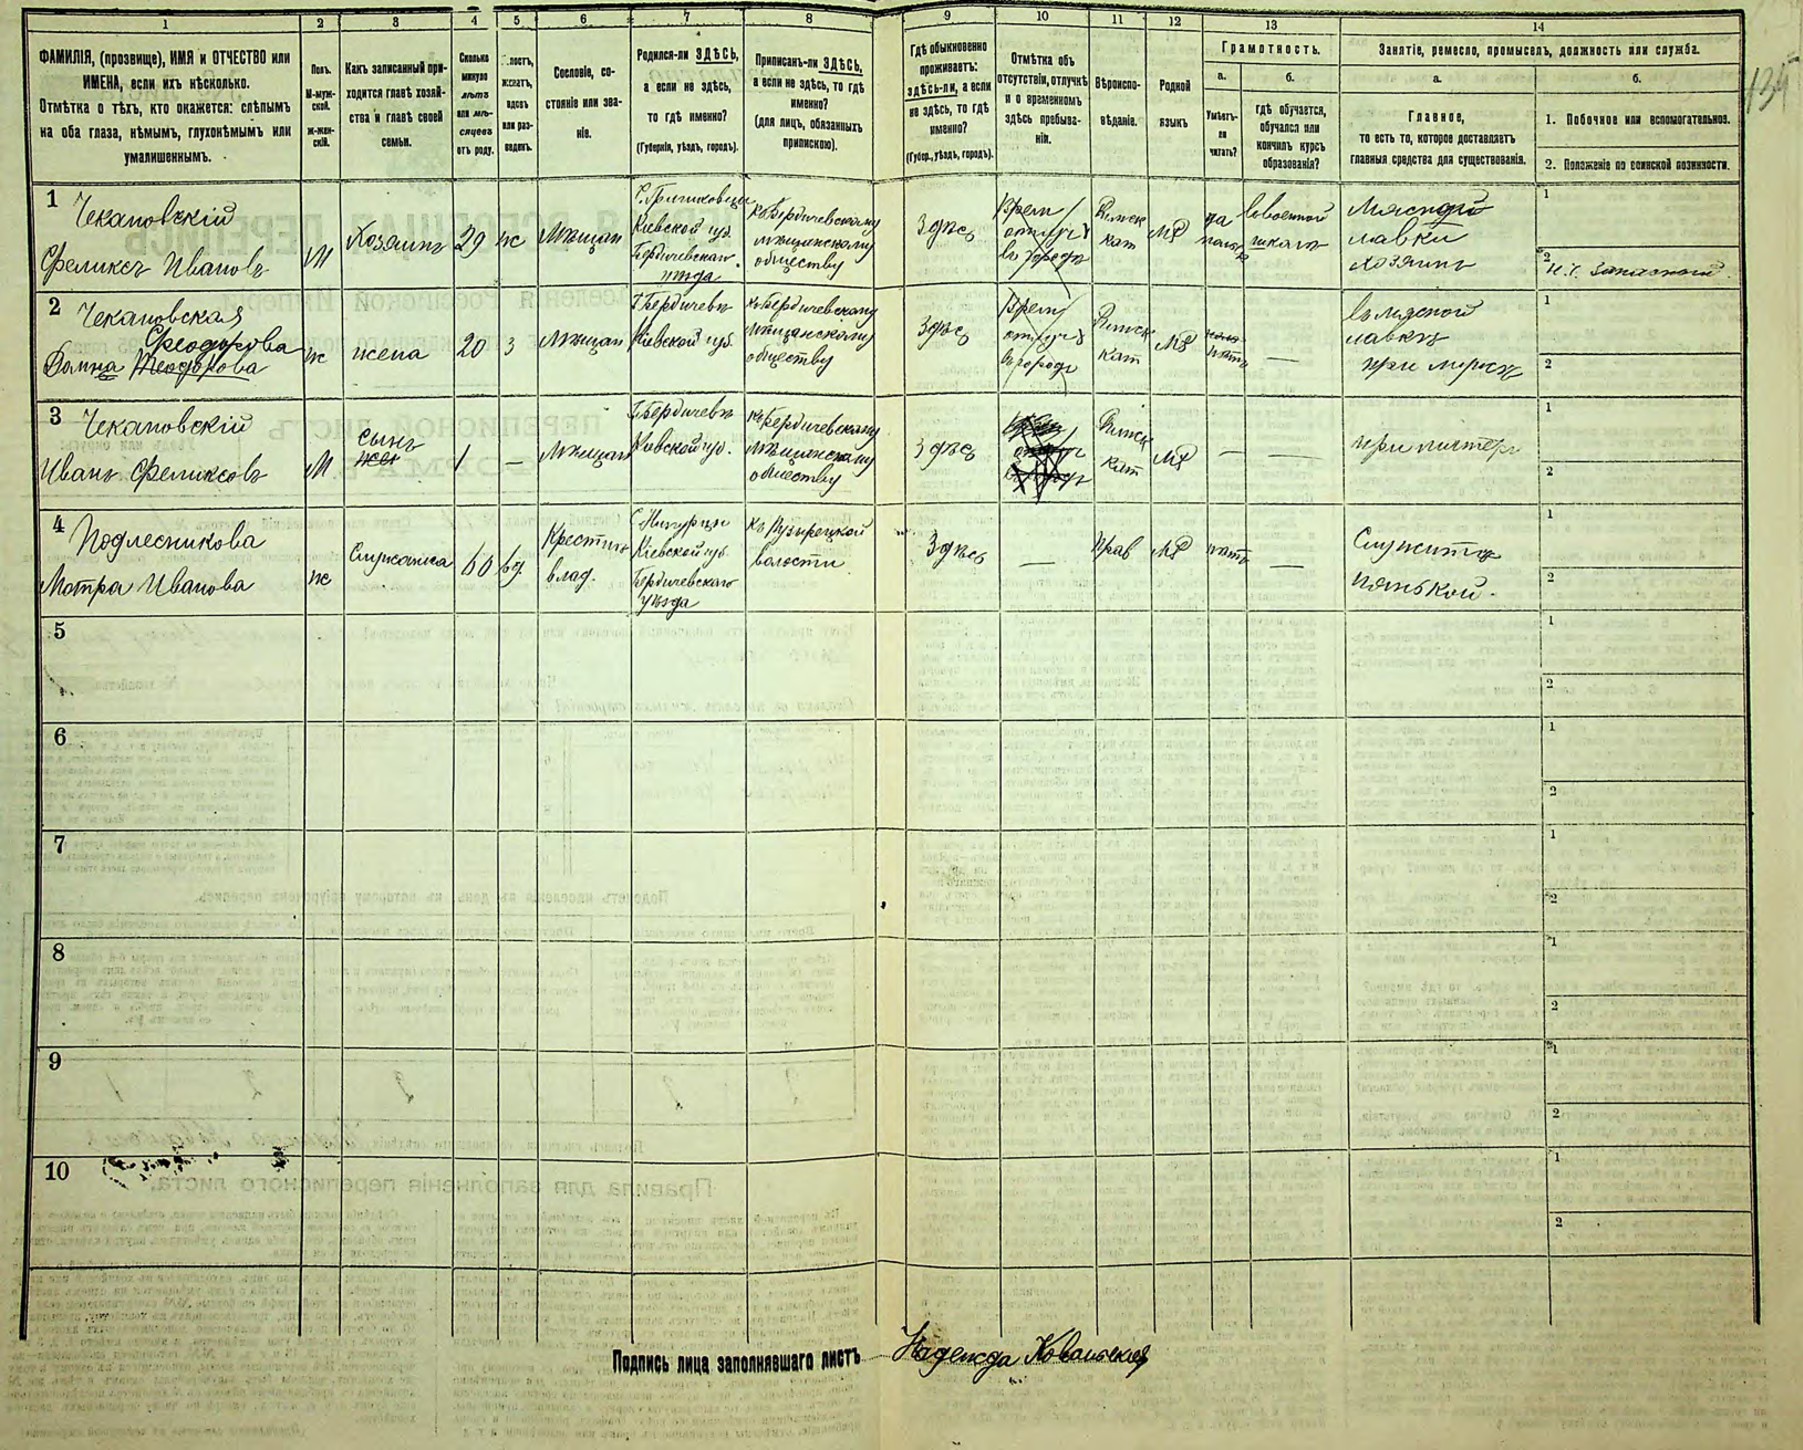 1 2 3 4 5 6 7 8 9 10 11 12 13 14
ФАМИЛІЯ, (прозвище), ИМЯ и ОТЧЕСТВО или
ИМЕНА, если ихъ нѣсколько.
Отмѣтка о тѣхъ, кто окажется: слѣпымъ
на оба глаза, нѣмымъ, глухонѣмымъ или
умалишеннымъ.
Полъ.
М-муж-
ской.
Ж-жен-
скій.
Какъ записанный при-
ходится главѣ хозяй-
ства и главѣ своей
семьи.
Сколько
минуло
лѣтъ
или мѣ-
сяцевъ
отъ роду.
женатъ,
вдовъ
или раз-
веденъ.
Сословіе, со-
стояніе или зва-
ніе.
Родился-ли ЗДѢСЬ,
а если не здѣсь,
то гдѣ именно?
(Губернія, уѣздъ, городъ).
Приписанъ-ли ЗДѢСЬ,
а если не здѣсь, то гдѣ
именно?
(для лицъ, обязанныхъ
припискою).
Гдѣ обыкновенно
проживаетъ:
здѣсь-ли, а если
не здѣсь, то гдѣ
именно?
(Губер., уѣздъ, городъ).
Отмѣтка объ
отсутствіи, отлучкѣ
и о временномъ
здѣсь пребыва-
ніи.
Вѣроиспо-
вѣданіе.
Родной
языкъ
Грамотность.
а.
Умѣетъ-
ли
читать?
б.
гдѣ обучается,
обучался или
кончилъ курсъ
образованія?
Занятіе, ремесло, промыселъ, должность или служба.
а.
Главное,
то есть то, которое доставляетъ
главныя средства для существованія.
б.
1. Побочное или вспомогательное.
2. Положеніе по воинской повинности.
135
1 Чекановскій
Феликсъ Ивановъ
М
Хозяинъ
29
ж
Мѣщан
Кіевской губ.
Бердичевскаго
уѣзда
къ Бердичевскому
мѣщанскому
обществу
Здѣсь
Врем
отлуч
въ городъ
Римск
кат
да
Мясной
лавки
хозяинъ
1
2
2 Чекановская
Феодорова
Домна Теодорова
ж
жена
20
з
Мѣщан
Г Бердичевъ
Кіевской губ.
къ Бердичевскому
мѣщанскому
обществу
Здѣсь
Врем
отлуч
въ городъ
Римск
кат
—
въ мясной
лавкѣ
при мужѣ
1
2
3 Чекановскій
Иванъ Феликсовъ
М
сынъ
1
—
Мѣщан
Г Бердичевъ
Кіевской губ.
къ Бердичевскому
мѣщанскому
обществу
Здѣсь
Римск
кат
—
—
при матери
1
2
4 Подлесникова
Мотра Иванова
ж
Служанка
60
вд.
Крестьян
влад.
Кіевской губ
Бердичевскаго
уѣзда
къ Пузырецкой
волости
Здѣсь
—
прав
—
Служитъ
нянькой.
1
2
5
1
2
6
1
2
7
1
2
8
1
2
9
1
2
10
1
2
Подпись лица заполнявшаго листъ Надежда Ковальская